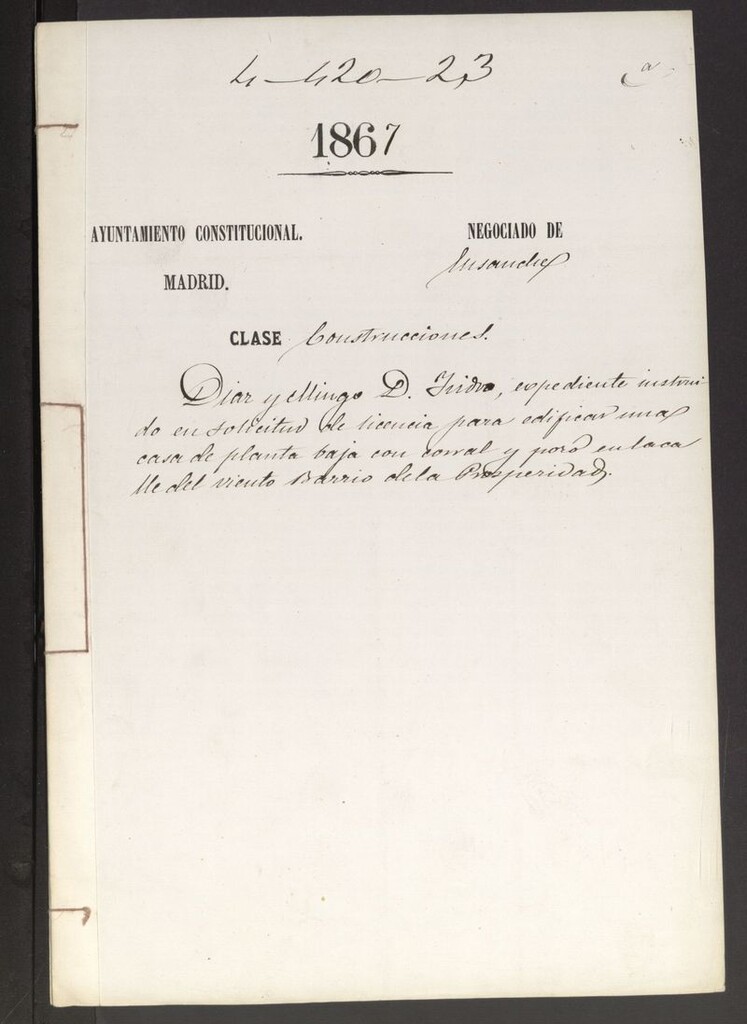 4-420-23
1867
AYUNTAMIENTO CONSTITUCIONAL.
NEGOCIADO DE
Ensanche
MADRID.
CLASE Construcciones.
Diaz y Mingo D. Isidro, expediente instrui-
do en solicitud de licencia para edificar una
casa de planta baja con corral y pozo en la ca
lle del viento Barrio de la Prosperidad.